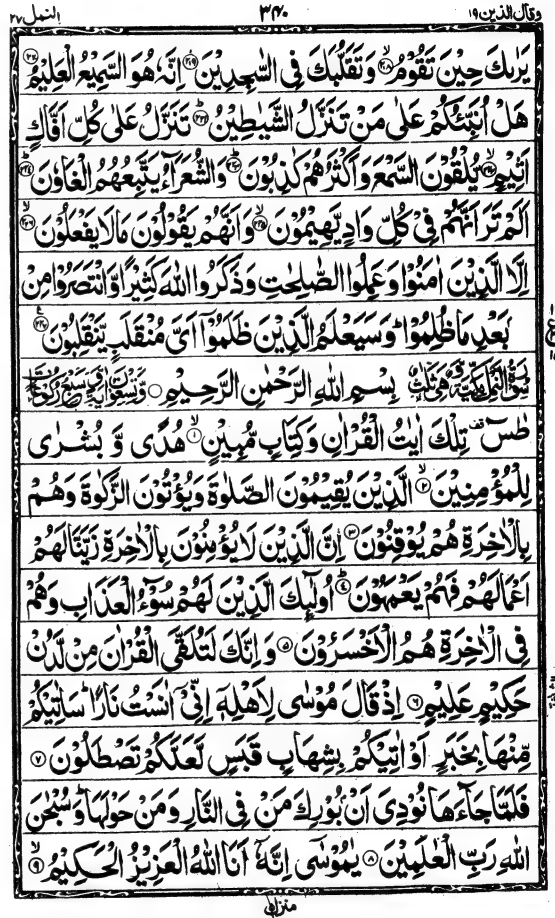 وقال الذين ١٩ ٣٤٠ النمل ٢٧
يَرٰىكَ حِيْنَ تَقُوْمُ ﴿٢١٨﴾ وَتَقَلُّبَكَ فِى السّٰجِدِيْنَ ﴿٢١٩﴾ اِنَّهٗ هُوَ السَّمِيْعُ الْعَلِيْمُ ﴿٢٢٠﴾
هَلْ اُنَبِّئُكُمْ عَلٰى مَنْ تَنَزَّلُ الشَّيٰطِيْنُ ﴿٢٢١﴾ تَنَزَّلُ عَلٰى كُلِّ اَفَّاكٍ
اَثِيْمٍ ﴿٢٢٢﴾ يُّلْقُوْنَ السَّمْعَ وَاَكْثَرُهُمْ كٰذِبُوْنَ ﴿٢٢٣﴾ وَالشُّعَرَآءُ يَتَّبِعُهُمُ الْغَاوٗنَ ﴿٢٢٤﴾
اَلَمْ تَرَ اَنَّهُمْ فِىْ كُلِّ وَادٍ يَّهِيْمُوْنَ ﴿٢٢٥﴾ وَاَنَّهُمْ يَقُوْلُوْنَ مَا لَا يَفْعَلُوْنَ ﴿٢٢٦﴾
اِلَّا الَّذِيْنَ اٰمَنُوْا وَعَمِلُوا الصّٰلِحٰتِ وَذَكَرُوا اللّٰهَ كَثِيْرًا وَّانْتَصَرُوْا مِنْ
بَعْدِ مَا ظُلِمُوْا ؕ وَسَيَعْلَمُ الَّذِيْنَ ظَلَمُوْۤا اَىَّ مُنْقَلَبٍ يَّنْقَلِبُوْنَ ﴿٢٢٧﴾
بِسْمِ اللّٰهِ الرَّحْمٰنِ الرَّحِيْمِ
طٰسٓ ۚ تِلْكَ اٰيٰتُ الْقُرْاٰنِ وَكِتَابٍ مُّبِيْنٍ ﴿١﴾ هُدًى وَّ بُشْرٰى
لِلْمُؤْمِنِيْنَ ﴿٢﴾ الَّذِيْنَ يُقِيْمُوْنَ الصَّلٰوةَ وَيُؤْتُوْنَ الزَّكٰوةَ وَهُمْ
بِالْاٰخِرَةِ هُمْ يُوْقِنُوْنَ ﴿٣﴾ اِنَّ الَّذِيْنَ لَا يُؤْمِنُوْنَ بِالْاٰخِرَةِ زَيَّنَّا لَهُمْ
اَعْمَالَهُمْ فَهُمْ يَعْمَهُوْنَ ﴿٤﴾ اُولٰٓئِكَ الَّذِيْنَ لَهُمْ سُوْٓءُ الْعَذَابِ وَهُمْ
فِى الْاٰخِرَةِ هُمُ الْاَخْسَرُوْنَ ﴿٥﴾ وَاِنَّكَ لَتُلَقَّى الْقُرْاٰنَ مِنْ لَّدُنْ
حَكِيْمٍ عَلِيْمٍ ﴿٦﴾ اِذْ قَالَ مُوْسٰى لِاَهْلِهٖۤ اِنِّىْۤ اٰنَسْتُ نَارًا ؕ سَاٰتِيْكُمْ
مِّنْهَا بِخَبَرٍ اَوْ اٰتِيْكُمْ بِشِهَابٍ قَبَسٍ لَّعَلَّكُمْ تَصْطَلُوْنَ ﴿٧﴾
فَلَمَّا جَآءَهَا نُوْدِىَ اَنْۢ بُوْرِكَ مَنْ فِى النَّارِ وَمَنْ حَوْلَهَا ؕ وَسُبْحٰنَ
اللّٰهِ رَبِّ الْعٰلَمِيْنَ ﴿٨﴾ يٰمُوْسٰۤى اِنَّهٗۤ اَنَا اللّٰهُ الْعَزِيْزُ الْحَكِيْمُ ﴿٩﴾